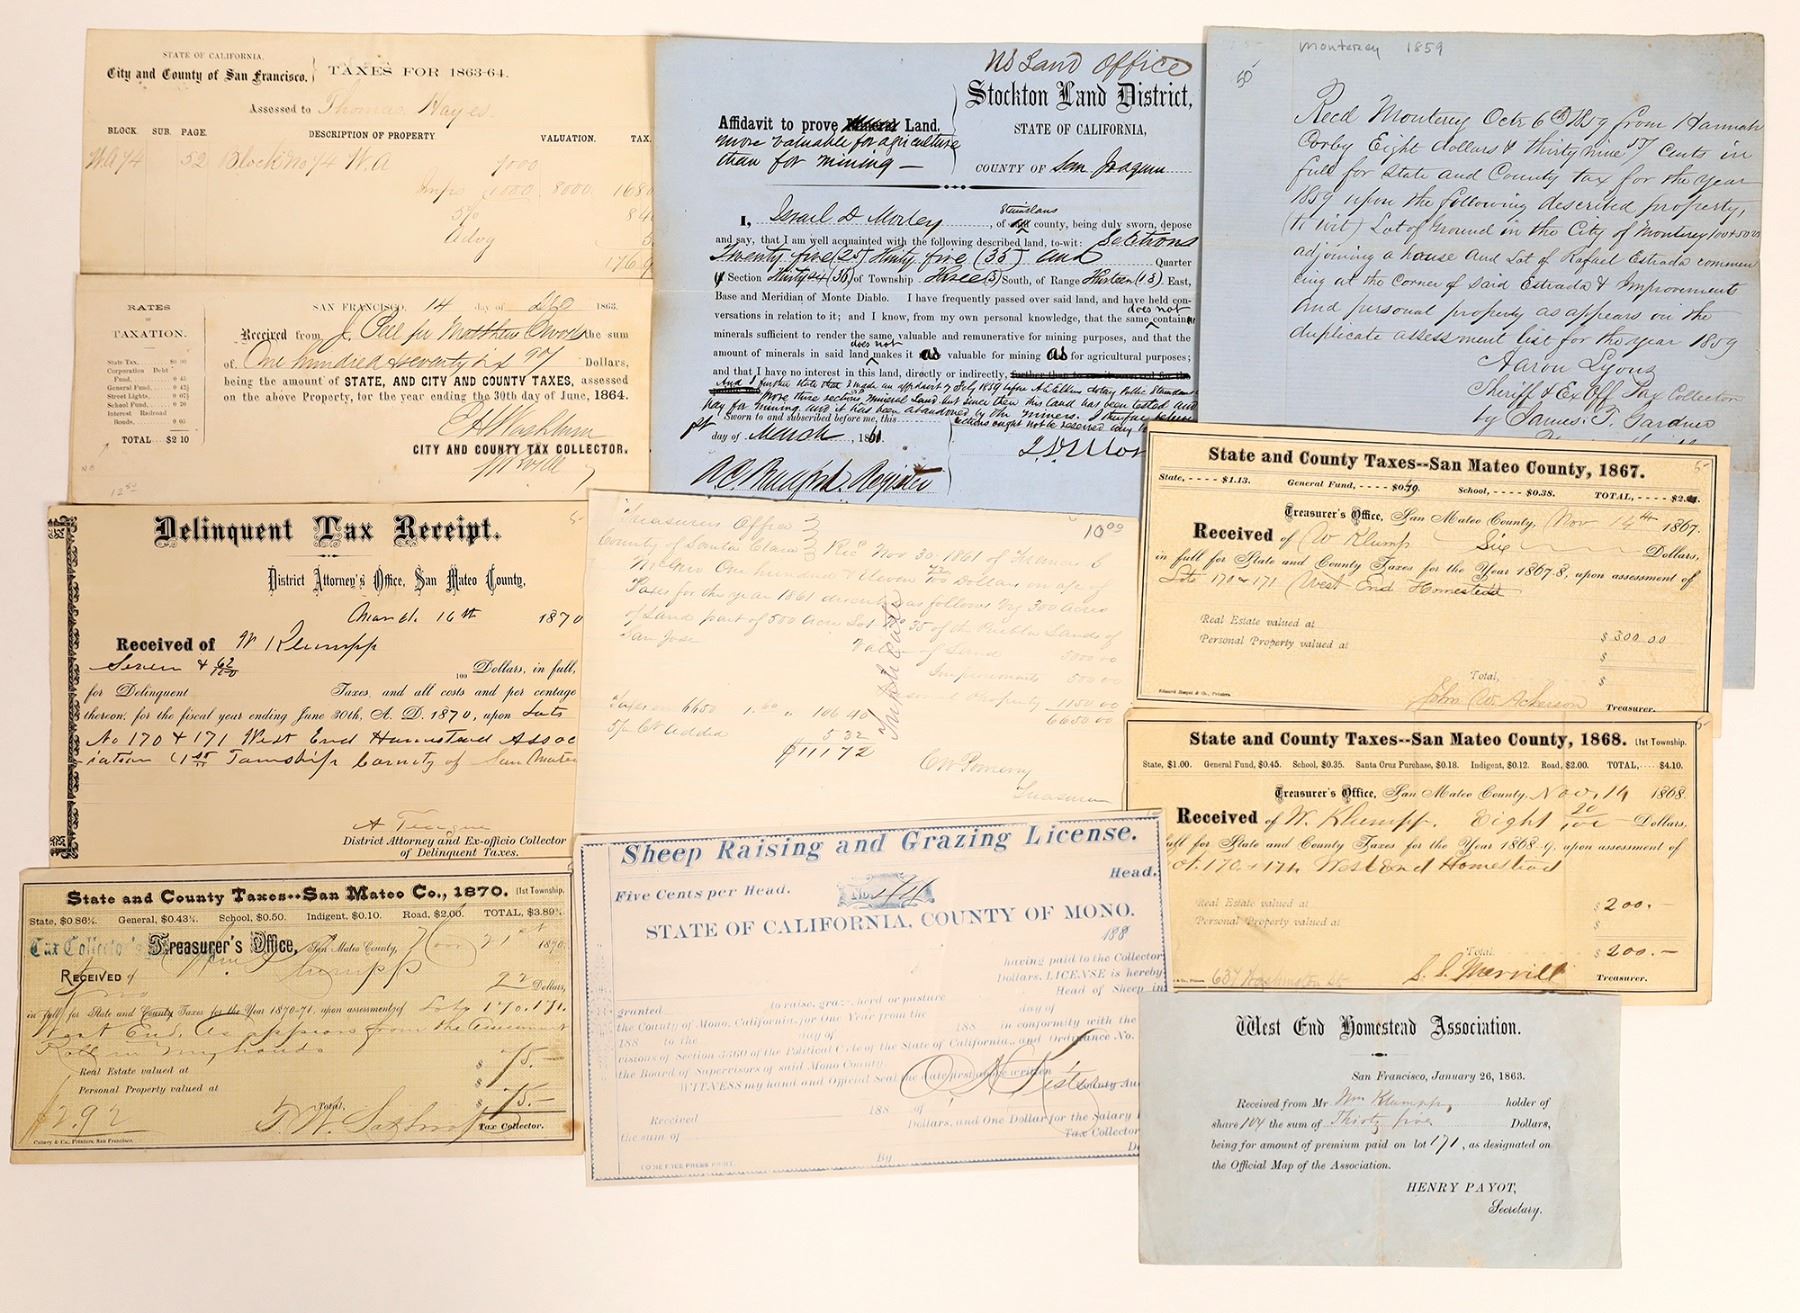 STATE OF CALIFORNIA.
City and County of San Francisco. TAXES FOR 1863-64.
Assessed to Thomas Hayes.
BLOCK. SUB. PAGE. DESCRIPTION OF PROPERTY VALUATION. TAX.
WA 74 52 Block No 74 W.A 7000
Imps 1000 8000 168 0
5% 8 4
Advg
176 9
RATES
OF
TAXATION.
State Tax,
Corporation Debt
Fund, 0 45
General Fund,
Street Lights,
School Fund, 0 20
Interest Railroad
Bonds, 0 06
TOTAL $2 10
SAN FRANCISCO, 14 day of Dec 1863.
Received from J. for Matthew the sum
of One hundred & seventy six 97 Dollars,
being the amount of STATE, AND CITY AND COUNTY TAXES, assessed
on the above Property, for the year ending the 30th day of June, 1864.
E H Washburn
CITY AND COUNTY TAX COLLECTOR.
12 50
US Land Office
Stockton Land District,
STATE OF CALIFORNIA,
COUNTY OF San Joaquin
Affidavit to prove Mineral Land.
more valuable for agriculture
than for mining —
I, Israel D Morley, of Stanislaus county, being duly sworn, depose
and say, that I am well acquainted with the following described land, to-wit: Sections
Twenty five (25) Thirty five (35) and Quarter
of Section Thirty six (36) of Township Three (3) South, of Range Thirteen (13) East,
Base and Meridian of Monte Diablo. I have frequently passed over said land, and have held con-
versations in relation to it; and I know, from my own personal knowledge, that the same does not contain
minerals sufficient to render the same valuable and remunerative for mining purposes, and that the
amount of minerals in said land does not makes it as valuable for mining as for agricultural purposes;
and that I have no interest in this land, directly or indirectly,
And I further state that I made an affidavit of July 1859 before Notary Public Stanislaus
these sections mineral Land but since then this land has been tested and
pay for mining and it has been abandoned by the miners. I therefore
Sworn to and subscribed before me, this
1st day of March, 1861
Register
Monterey 1859
50
Recd Monterey Octr 6th 1859 from Hannah
Corby Eight dollars & thirty nine 57 cents in
full for State and County tax for the year
1859 upon the following described property,
(to wit) Lot of Ground in the City of Monterey 100+50 vs
adjoining a house and Lot of Rafael Estrada commen
cing at the corner of said Estrada & Improvements
and personal property as appears on the
duplicate assessment list for the year 1859
Aaron Lyons
Sheriff & Ex Off Tax Collector
by James. T. Gardner
State and County Taxes--San Mateo County, 1867.
State, - - - - $1.13. General Fund, - - - - $0.49. School, - - - - $0.38. TOTAL, - - - - $2.
Treasurer's Office, San Mateo County, Nov 14th 1867.
Received of W Klumpp Six Dollars,
in full for State and County Taxes for the Year 1867-8, upon assessment of
Lots 170 & 171 West End Homestead
Real Estate valued at
Personal Property valued at $ 300.00
$
Total, $
Edward Bosqui & Co., Printers.
John W. Ackerson Treasurer.
State and County Taxes--San Mateo County, 1868. (1st Township.
State, $1.00. General Fund, $0.45. School, $0.35. Santa Cruz Purchase, $0.18. Indigent, $0.12. Road, $2.00. TOTAL, $4.10.
Treasurer's Office, San Mateo County, Nov, 14 1868.
Received of W. Klumpp. Eight 20/100 Dollars,
full for State and County Taxes for the Year 1868-9, upon assessment of
170 & 171, West End Homestead
Real Estate valued at $ 200.—
Personal Property valued at
Total. $ 200.—
637 Washington St
Treasurer.
Delinquent Tax Receipt.
District Attorney's Office, San Mateo County,
March 16th 1870
Received of W Klumpp
Seven & 62/100 100 Dollars, in full,
for Delinquent Taxes, and all costs and per centage
thereon, for the fiscal year ending June 30th, A. D. 1870, upon Lots
No 170 & 171 West End Homestead Assoc
iation (1st Township County of San Mateo
A Teague
District Attorney and Ex-officio Collector
of Delinquent Taxes.
10 00
Treasurers Office
County of Santa Clara Recd Nov 30. 1861 of Francis
One hundred & Eleven 72/100 Dollars on a/c of
Taxes for the year 1861 as follows Viz 300 acres
of Land part of 500 acre Lot 35 of the Pueblo Lands of
San Jose Value of Land 5000 00
Improvements 500 00
Personal Property 1150 00
Taxes on 6650 1.60 106 40 6650 00
5 pr Ct Added 5 32
$111 72
Triplicate
CW Pomeroy
Treasurer
State and County Taxes--San Mateo Co., 1870. (1st Township.
State, $0.86½. General, $0.43¼. School, $0.50. Indigent, $0.10. Road, $2.00. TOTAL, $3.89¾.
Tax Collector's Treasurer's Office, San Mateo County, Nov 21st 1870.
RECEIVED of Wm Klumpp
Two 22 Dollars,
in full for State and County Taxes for the Year 1870-71, upon assessment of Lots 170.171.
West End. As appears from the Assessment
Roll in my hands
Real Estate valued at $ 75.—
Personal Property valued at $
Total, $ 75.—
$2.92
Tax Collector.
Cubery & Co., Printers, San Francisco.
Sheep Raising and Grazing License.
Five Cents per Head. No. Head.
STATE OF CALIFORNIA, COUNTY OF MONO.
188
having paid to the Collector
Dollars, LICENSE is hereby
granted to raise, graze, herd or pasture Head of Sheep in
the County of Mono, California, for One Year from the day of
188 to the day of 188 in conformity with the
visions of Section 3360 of the Political Code of the State of California, and Ordinance No.
the Board of Supervisors of said Mono County.
WITNESS my hand and Official Seal the date first above written
County Au
Received 188 of
the sum of Dollars, and One Dollar for the Salary
Tax Collector
By
West End Homestead Association.
San Francisco, January 26, 1863.
Received from Mr Wm Klumpp, holder of
share 104 the sum of Thirty five Dollars,
being for amount of premium paid on lot 171, as designated on
the Official Map of the Association.
HENRY PAYOT,
Secretary.